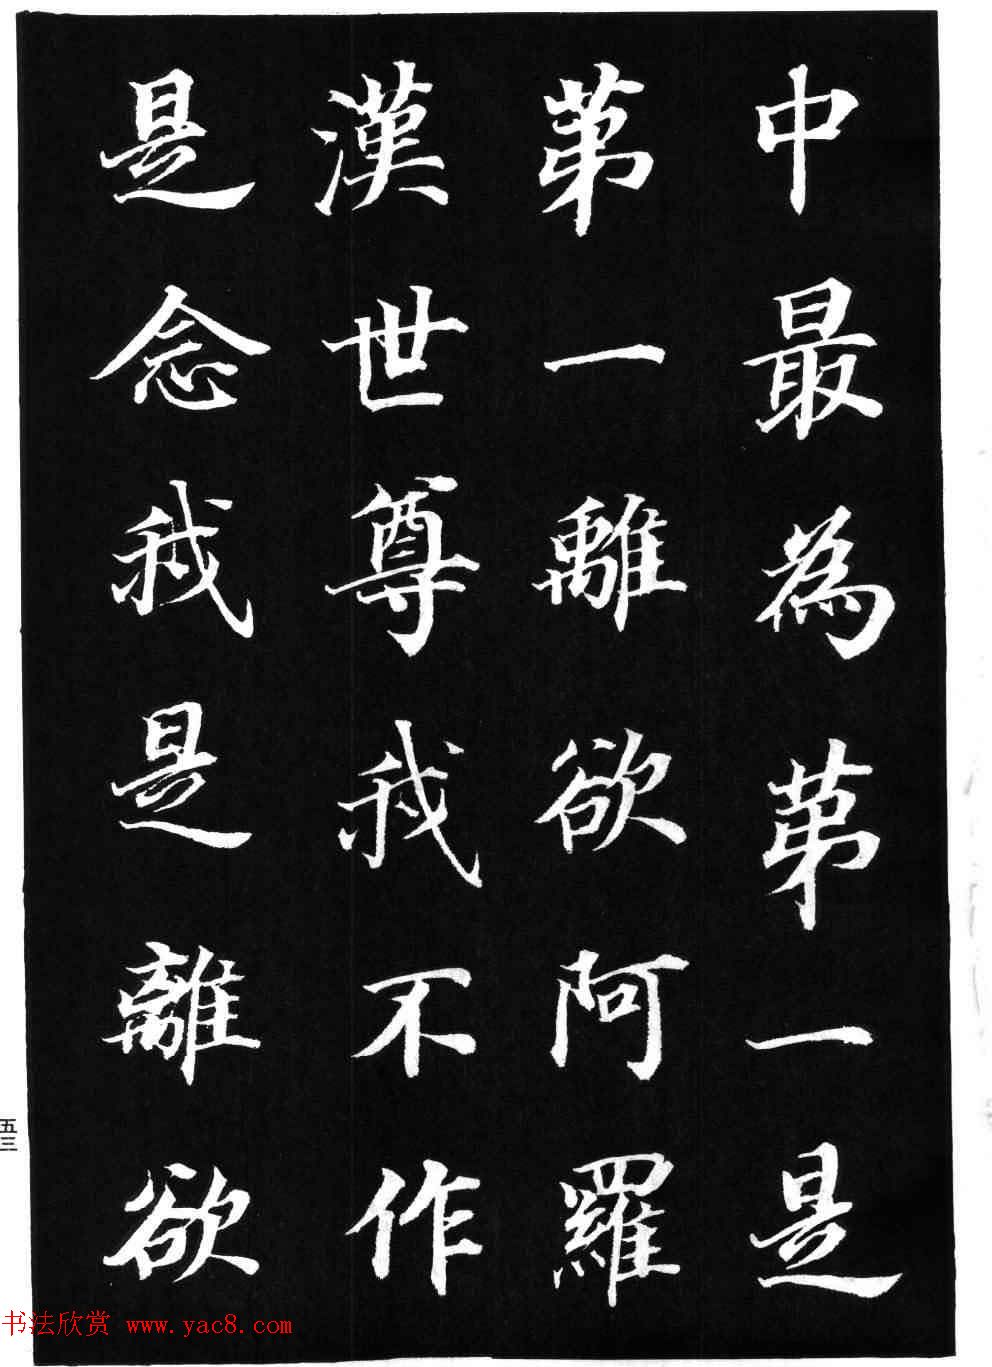 中最為苐一是
苐一離欲阿羅
漢世尊我不作
是念我是離欲
五三
书法欣赏 www.yac8.com